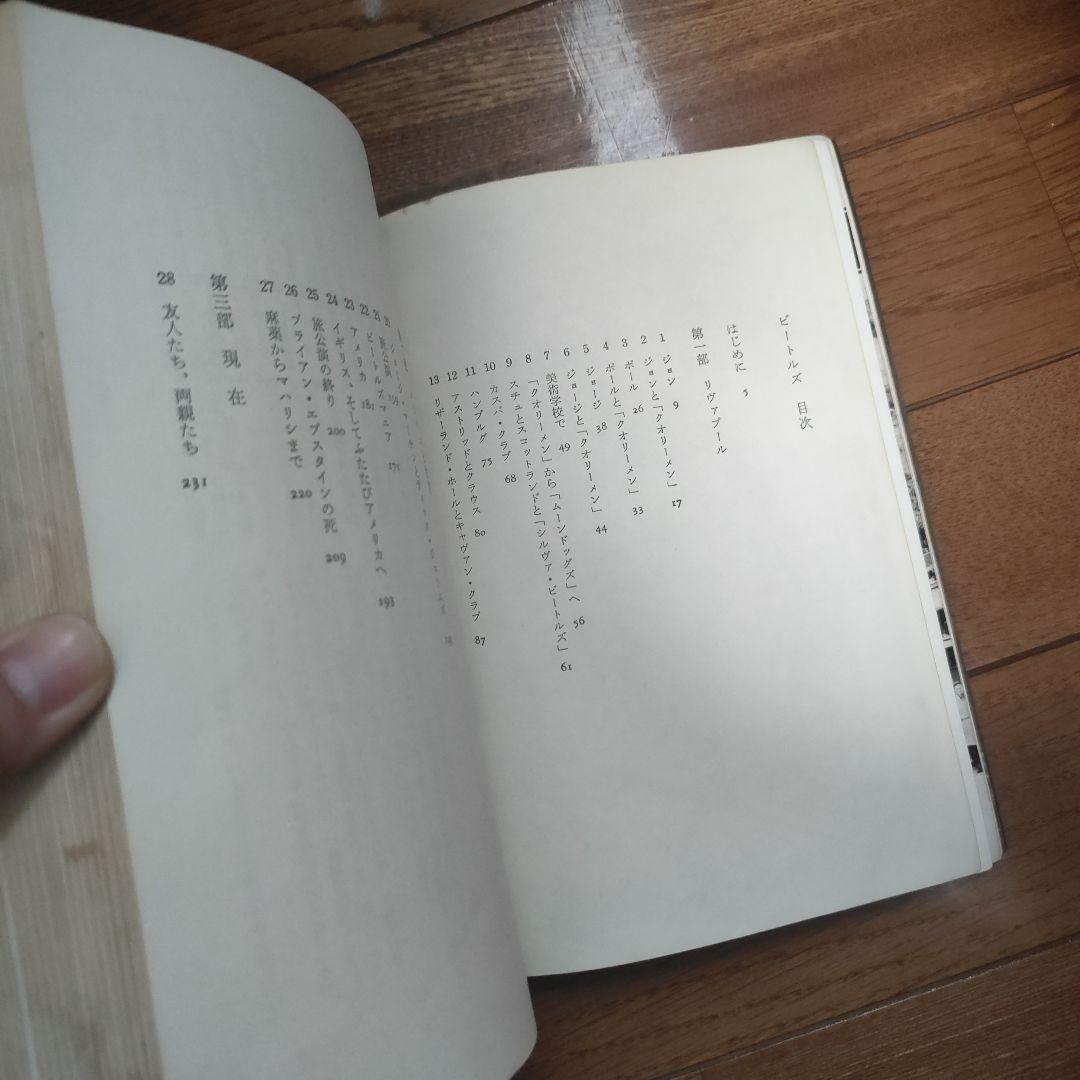 ビートルズ 目次
はじめに 5
第一部 リヴァプール
1 ジョン 9
2 ジョンと「クオリーメン」 17
3 ポール 26
4 ポールと「クオリーメン」 33
5 ジョージ 38
6 ジョージと「クオリーメン」 44
7 美術学校で 49
8 「クオリーメン」から「ムーンドッグズ」へ 56
9 スチュとスコットランドと「シルヴァ・ビートルズ」 61
10 カスバ・クラブ 68
11 ハンブルグ 75
12 アストリッドとクラウス 80
13 リザーランド・ホールとキャヴァン・クラブ 87
21 旅公演
22 ビートルズマニア 171
23 アメリカ 181
24 イギリス、そしてふたたびアメリカへ 193
25 旅公演の終り 200
26 ブライアン・エプスタインの死 209
27 麻薬からマハリシまで 220
第三部 現在
28 友人たち、両親たち 231